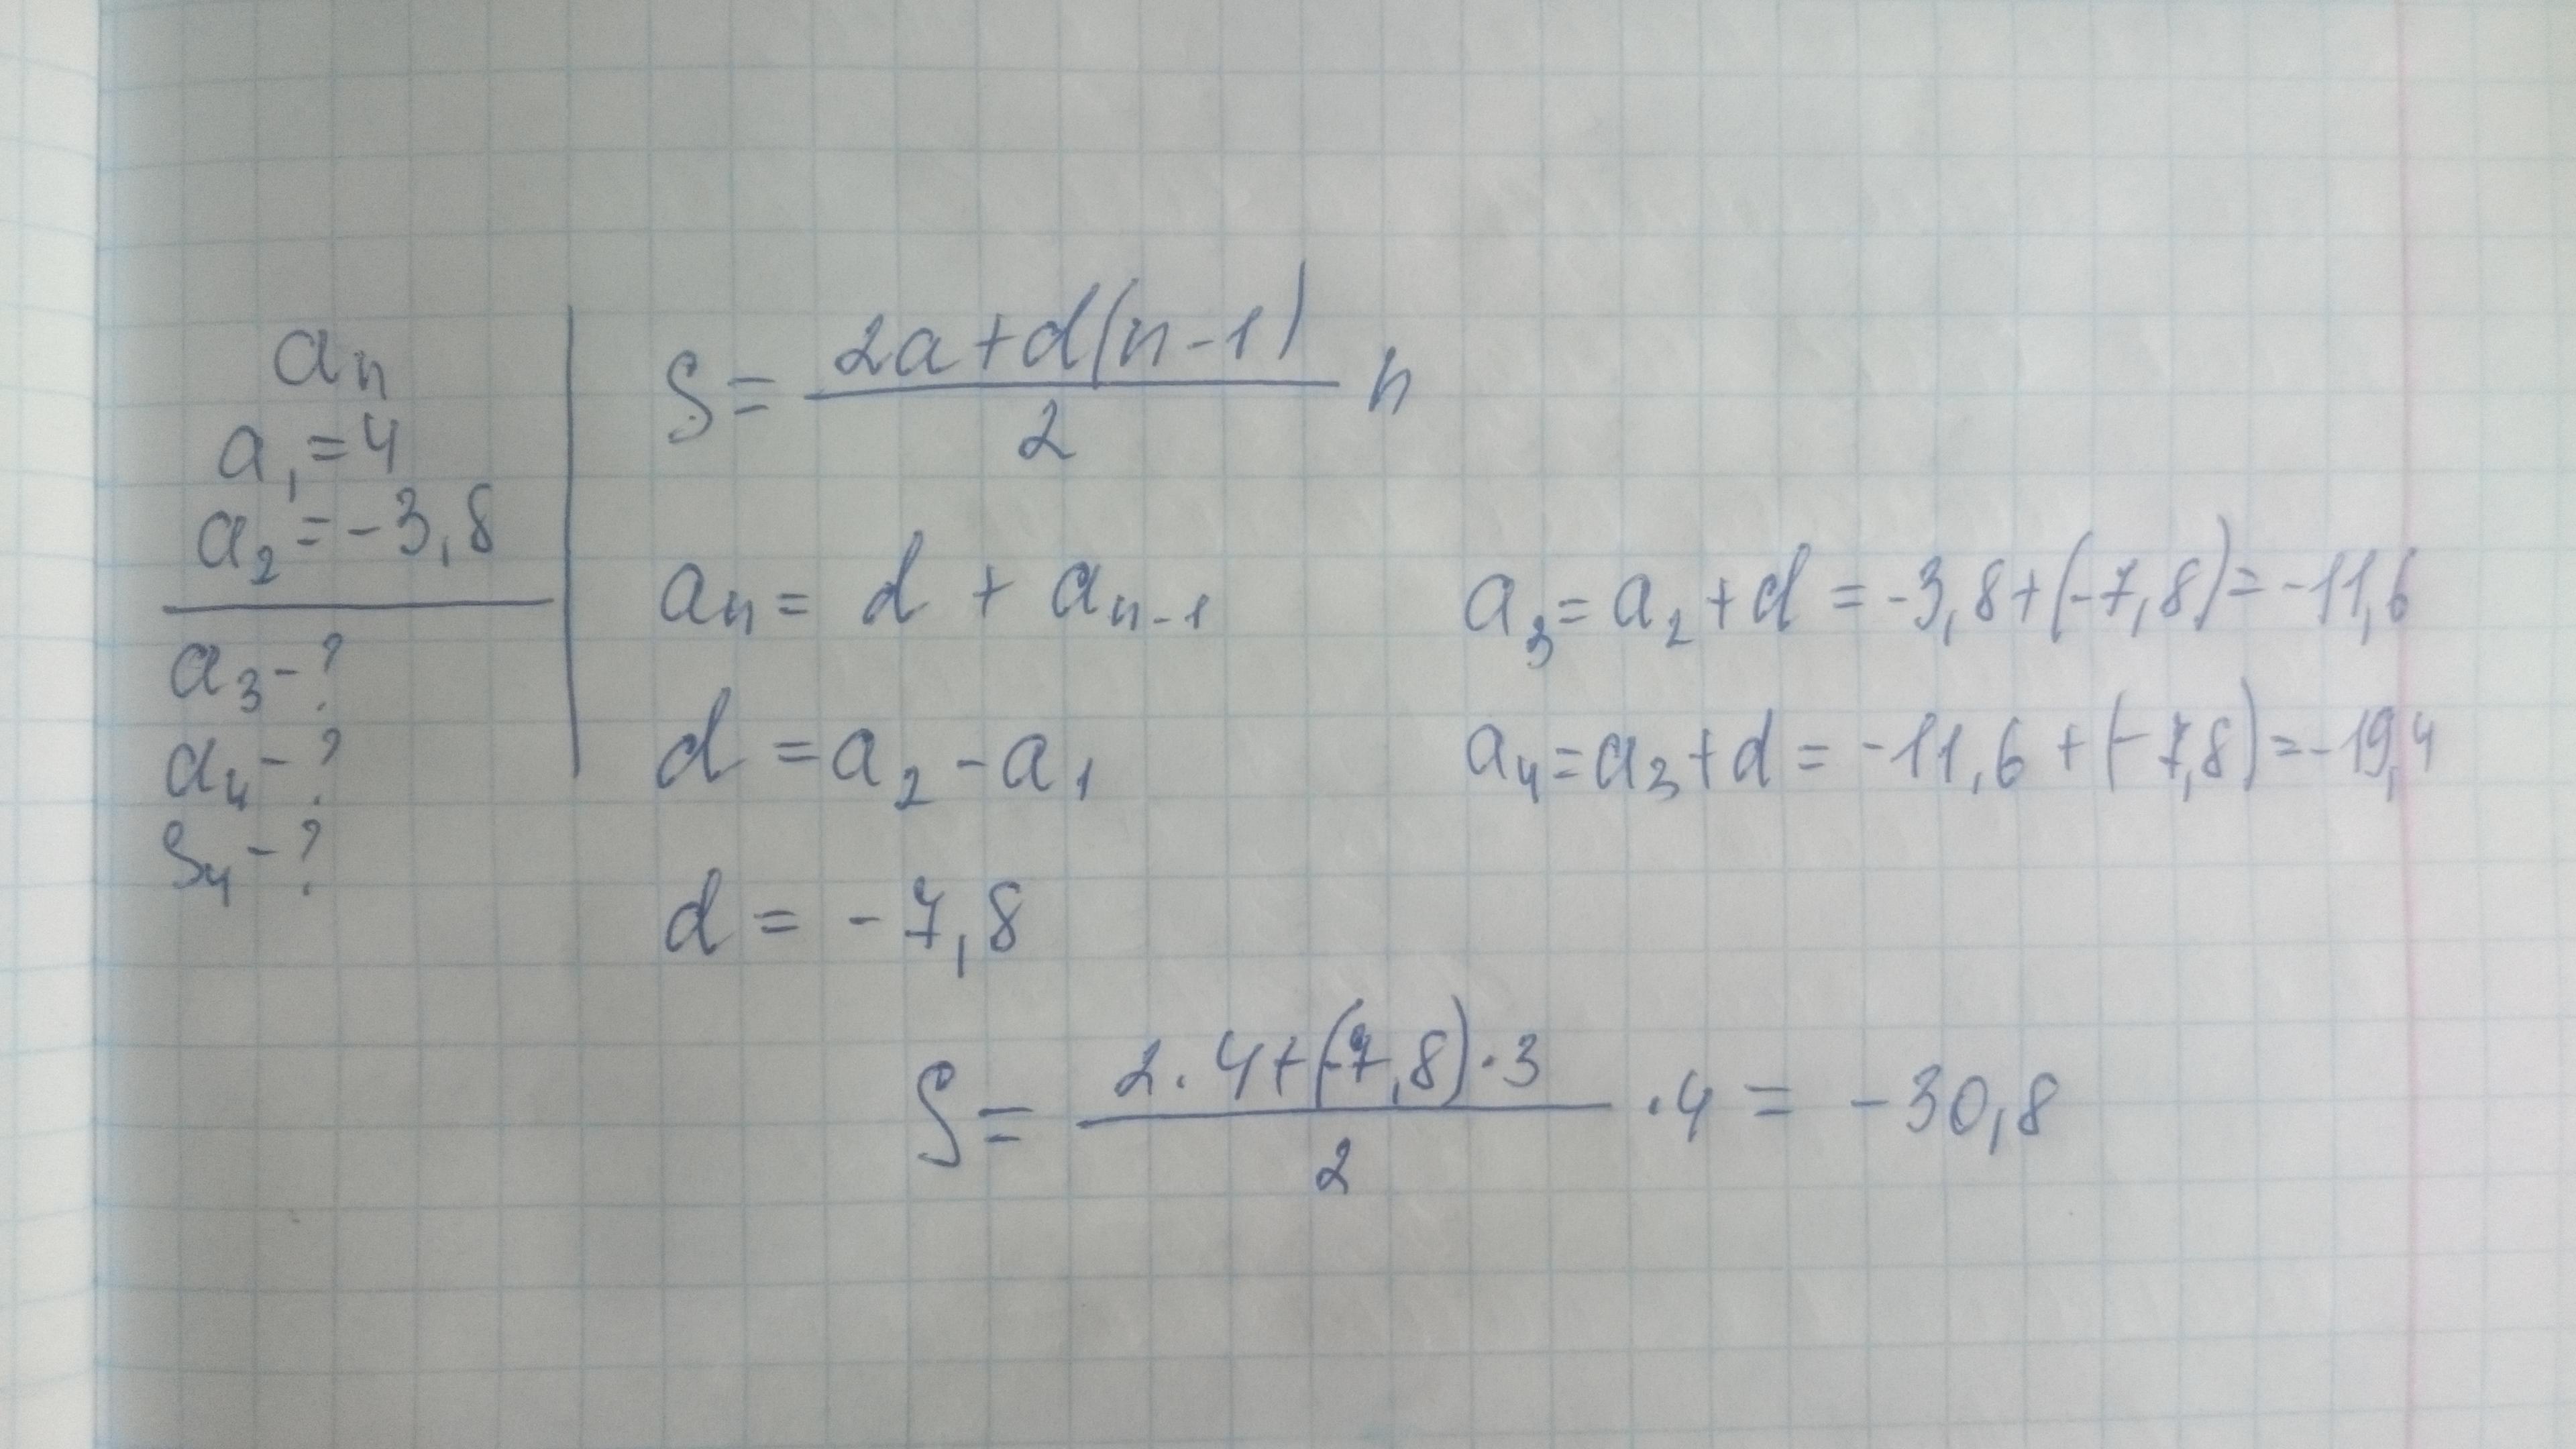 aₙ
a₁ = 4
a₂ = -3,8
a₃ - ?
a₄ - ?
S₄ - ?
S = (2a + d(n - 1)) / 2 n
aₙ = d + aₙ₋₁
d = a₂ - a₁
d = -7,8
a₃ = a₂ + d = -3,8 + (-7,8) = -11,6
a₄ = a₃ + d = -11,6 + (-7,8) = -19,4
S = (2 · 4 + (-7,8) · 3) / 2 · 4 = -30,8